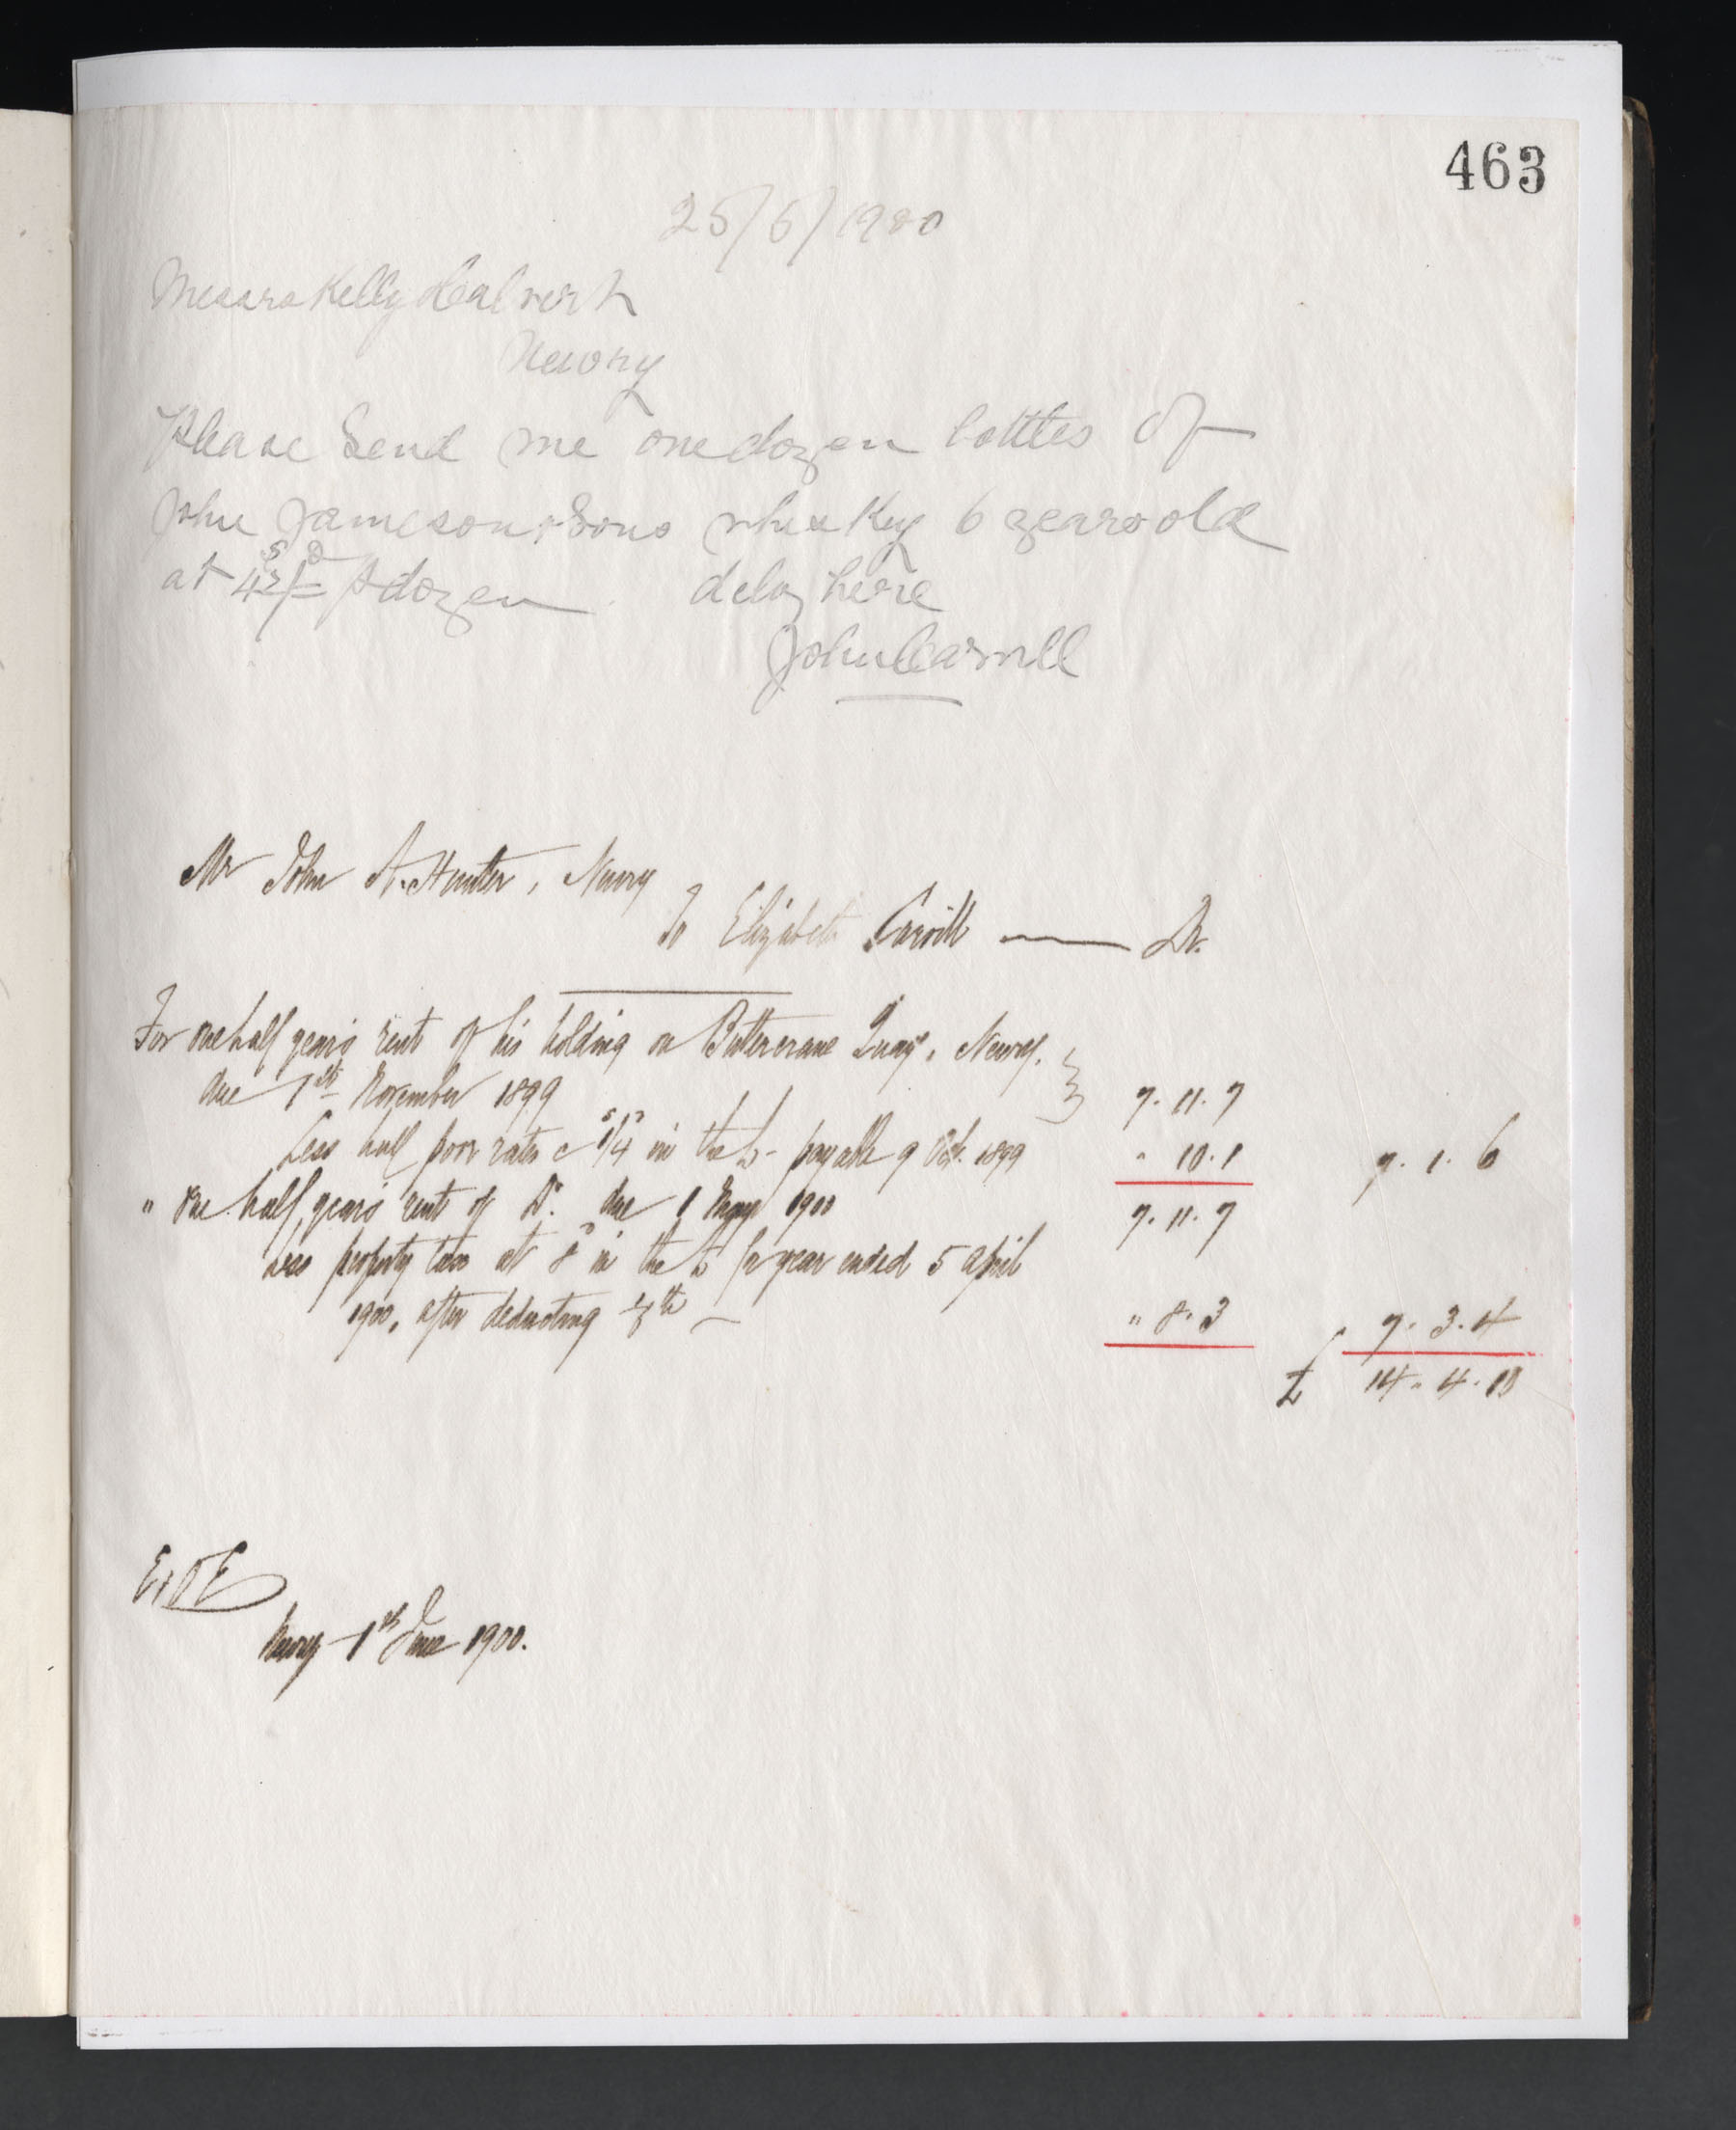 463
25/6/1900
Messrs Kelly & Calvert
Newry
Please Send me one dozen bottles of
John Jameson & Sons whiskey 6 years old
at 42/= P dozen delay here
John Carvill
Mr John A. Hunter, Newry
To Elizabeth Carvill — Dr.
For one half year's rent of his holding on Buttercrane Quay, Newry.
due 1st November 1899 7. 11. 7
Less half poor rates @ 1/4 in the £ payable 9 Oct. 1899 " 10. 1 7. 1. 6
" One half year's rent of Do. due 1 May 1900 7. 11. 7
Less property tax at 8d in the £ for year ended 5 April
1900, after deducting 1/6th — " 8. 3 7. 3. 4
£ 14. 4. 10
E & O E
Newry 1st June 1900.